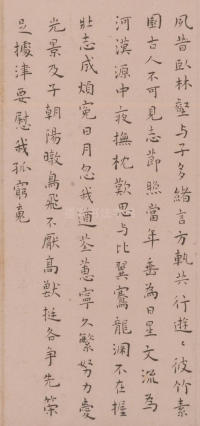 夙昔卧林壑与子多緒言方軌共行遊〻彼竹素
園古人不可見志節照當年垂為日星文流為
河漢源中夜撫枕歎思与比翼騫龍淵不在握
壯志成煩寃日月忽我遒荃蕙寧久繁努力愛
光景及子朝陽暾鳥飛不厭高獸挺各争先策
足據津要慰我孤窮寃